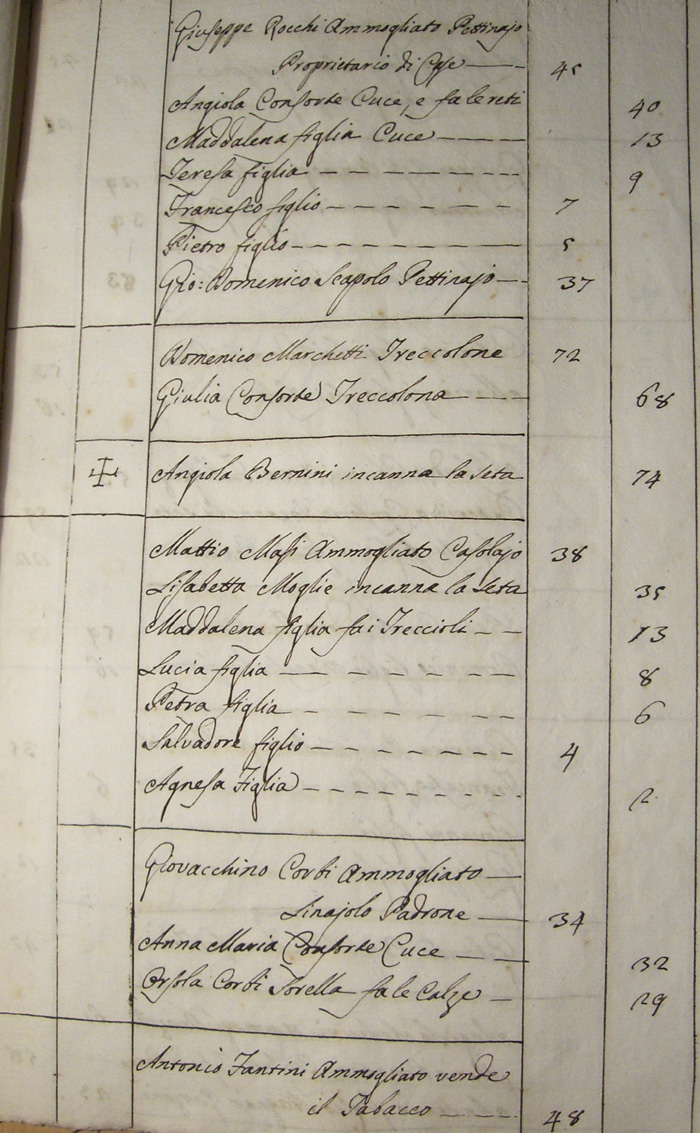 Giuseppe Rocchi Ammogliato Pettinajo
Proprietario di Case 45
Angiola Consorte Cuce, e fa le reti 40
Maddalena figlia Cuce 13
Teresa figlia 9
Francesco figlio 7
Pietro figlio 5
Gio: Domenico Scapolo Pettinajo 37
Domenico Marchetti Treccolone 72
Giulia Consorte Treccolona 68
Angiola Bernini incanna la seta 74
Mattio Masi Ammogliato Casolajo 38
Lisabetta Moglie incanna la seta 35
Maddalena figlia fa i Treccioli 13
Lucia figlia 8
Petra figlia 6
Salvadore figlio 4
Agnesa Figlia 2
Giovacchino Corbi Ammogliato
Linajolo Padrone 34
Anna Maria Consorte Cuce 32
Orsola Corbi Sorella fa le Calze 29
Antonio Fantini Ammogliato vende
il Tabacco 48